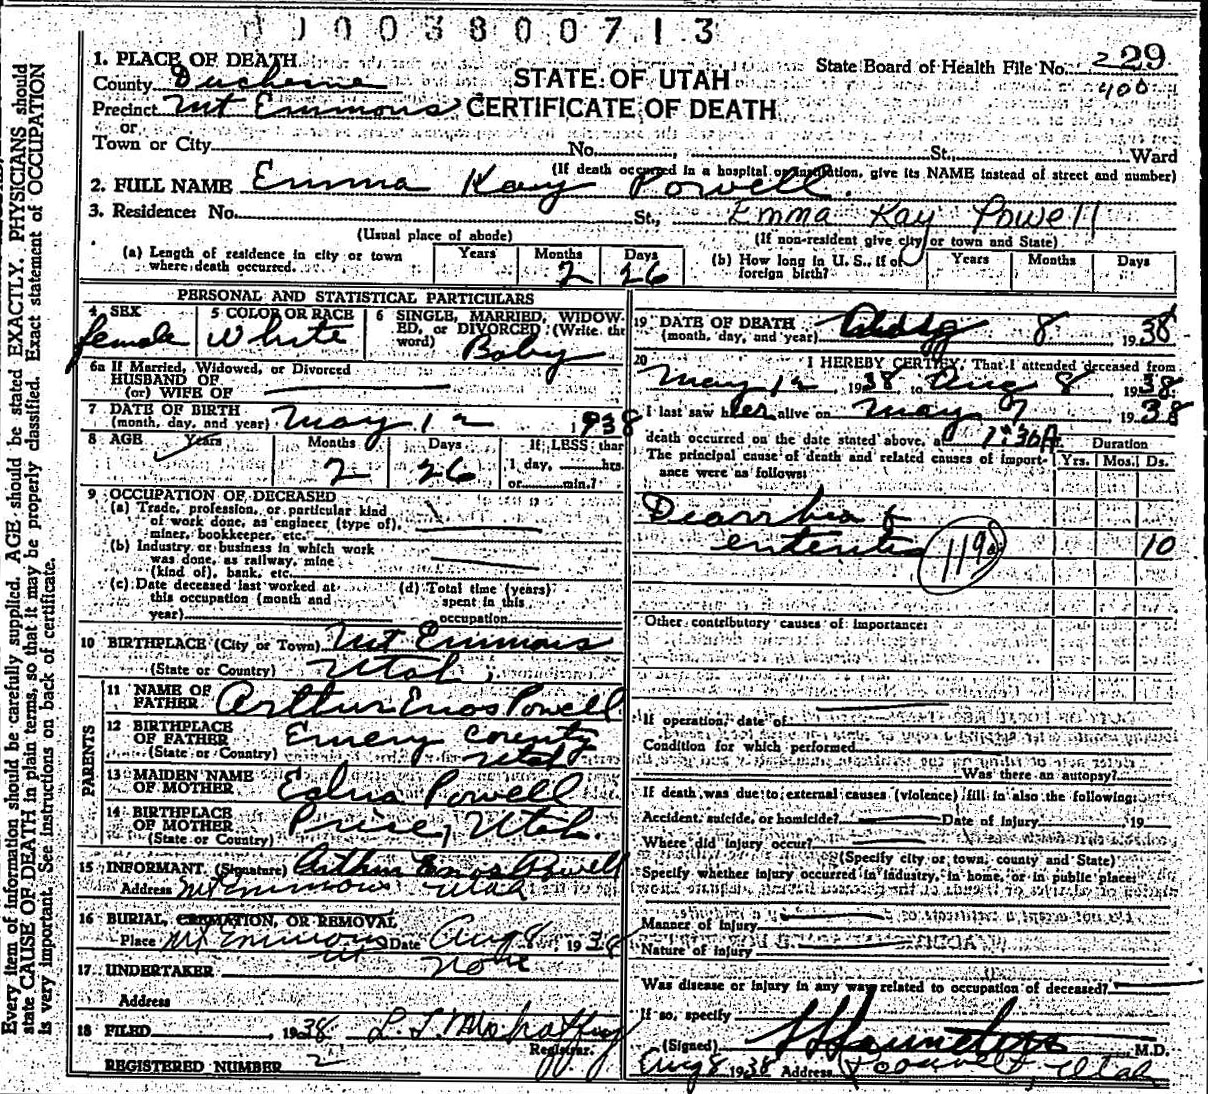 0003800713
1. PLACE OF DEATH
County Duchesne
STATE OF UTAH
State Board of Health File No. 229
400
Precinct Mt Emmons
CERTIFICATE OF DEATH
or
Town or City No. St., Ward
(If death occurred in a hospital or institution, give its NAME instead of street and number)
2. FULL NAME Emma Kay Powell.
3. Residence: No. St., Emma Kay Powell
(Usual place of abode) (If non-resident give city or town and State)
(a) Length of residence in city or town where death occurred. Years Months 2 Days 26
(b) How long in U. S., if of foreign birth? Years Months Days
PERSONAL AND STATISTICAL PARTICULARS
4 SEX female
5 COLOR OR RACE White
6 SINGLE, MARRIED, WIDOWED, or DIVORCED (Write the word) Baby
6a If Married, Widowed, or Divorced
HUSBAND OF
(or) WIFE OF
7 DATE OF BIRTH
(month, day, and year) May 12 1938
8 AGE Years Months 2 Days 26 If LESS than 1 day, hrs. or min.?
9 OCCUPATION OF DECEASED
(a) Trade, profession, or particular kind
of work done, as engineer (type of),
miner, bookkeeper, etc.
(b) Industry or business in which work
was done, as railway, mine
(kind of), bank, etc.
(c) Date deceased last worked at
this occupation (month and
year)
(d) Total time (years)
spent in this
occupation
10 BIRTHPLACE (City or Town) Mt Emmons
(State or Country) Utah
PARENTS
11 NAME OF FATHER Arthur Enos Powell
12 BIRTHPLACE OF FATHER (State or Country) Emery County Utah
13 MAIDEN NAME OF MOTHER Edna Powell
14 BIRTHPLACE OF MOTHER (State or Country) Price, Utah.
15 INFORMANT (Signature) Arthur Enos Powell
Address Mt Emmons Utah
16 BURIAL, CREMATION, OR REMOVAL
Place Mt Emmons Ut Date Aug 8 1938
17 UNDERTAKER None
Address
18 FILED , 1938
Registrar.
REGISTERED NUMBER 2
19 DATE OF DEATH
(month, day, and year) Aug 8 , 1938
20 I HEREBY CERTIFY, That I attended deceased from
May 12 1938 to Aug 8 1938
I last saw her alive on May 7 1938
death occurred on the date stated above, at 7:30A
Duration
The principal cause of death and related causes of importance were as follows:
Yrs. Mos. Ds.
Diarrhea &
enteritis 119a 10
Other contributory causes of importance:
If operation, date of
Condition for which performed
Was there an autopsy?
If death was due to external causes (violence) fill in also the following:
Accident, suicide, or homicide? Date of injury 19
Where did injury occur?
(Specify city or town, county and State)
Specify whether injury occurred in industry, in home, or in public place:
Manner of injury
Nature of injury
Was disease or injury in any way related to occupation of deceased?
If so, specify
(Signed) M.D.
Aug 8 1938 Address Roosevelt, Utah
Every item of information should be carefully supplied. AGE should be stated EXACTLY. PHYSICIANS should
state CAUSE OF DEATH in plain terms, so that it may be properly classified. Exact statement of OCCUPATION
is very important. See instructions on back of certificate.